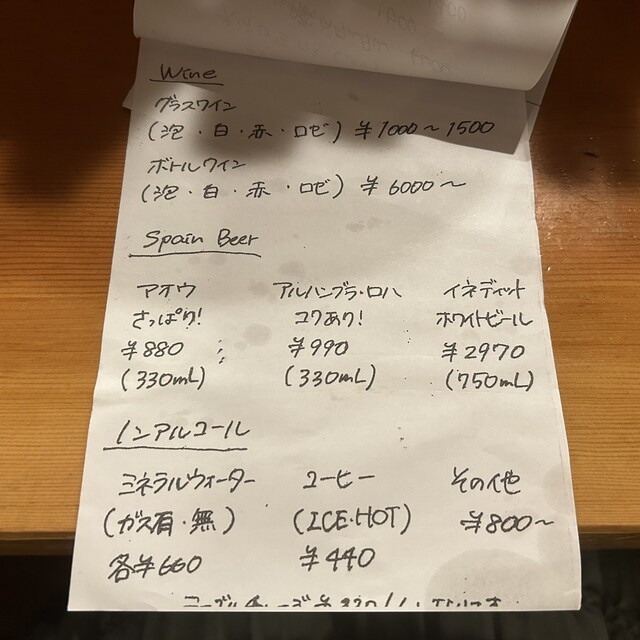 Wine
グラスワイン
(泡・白・赤・ロゼ) ¥1000～1500
ボトルワイン
(泡・白・赤・ロゼ) ¥6000～
Spain Beer
マオウ アルハンブラ・ロハ イネディット
さっぱり! コクあり! ホワイトビール
¥880 ¥990 ¥2970
(330mL) (330mL) (750mL)
ノンアルコール
ミネラルウォーター コーヒー その他
(ガス有・無) (ICE・HOT) ¥800～
各¥660 ¥440